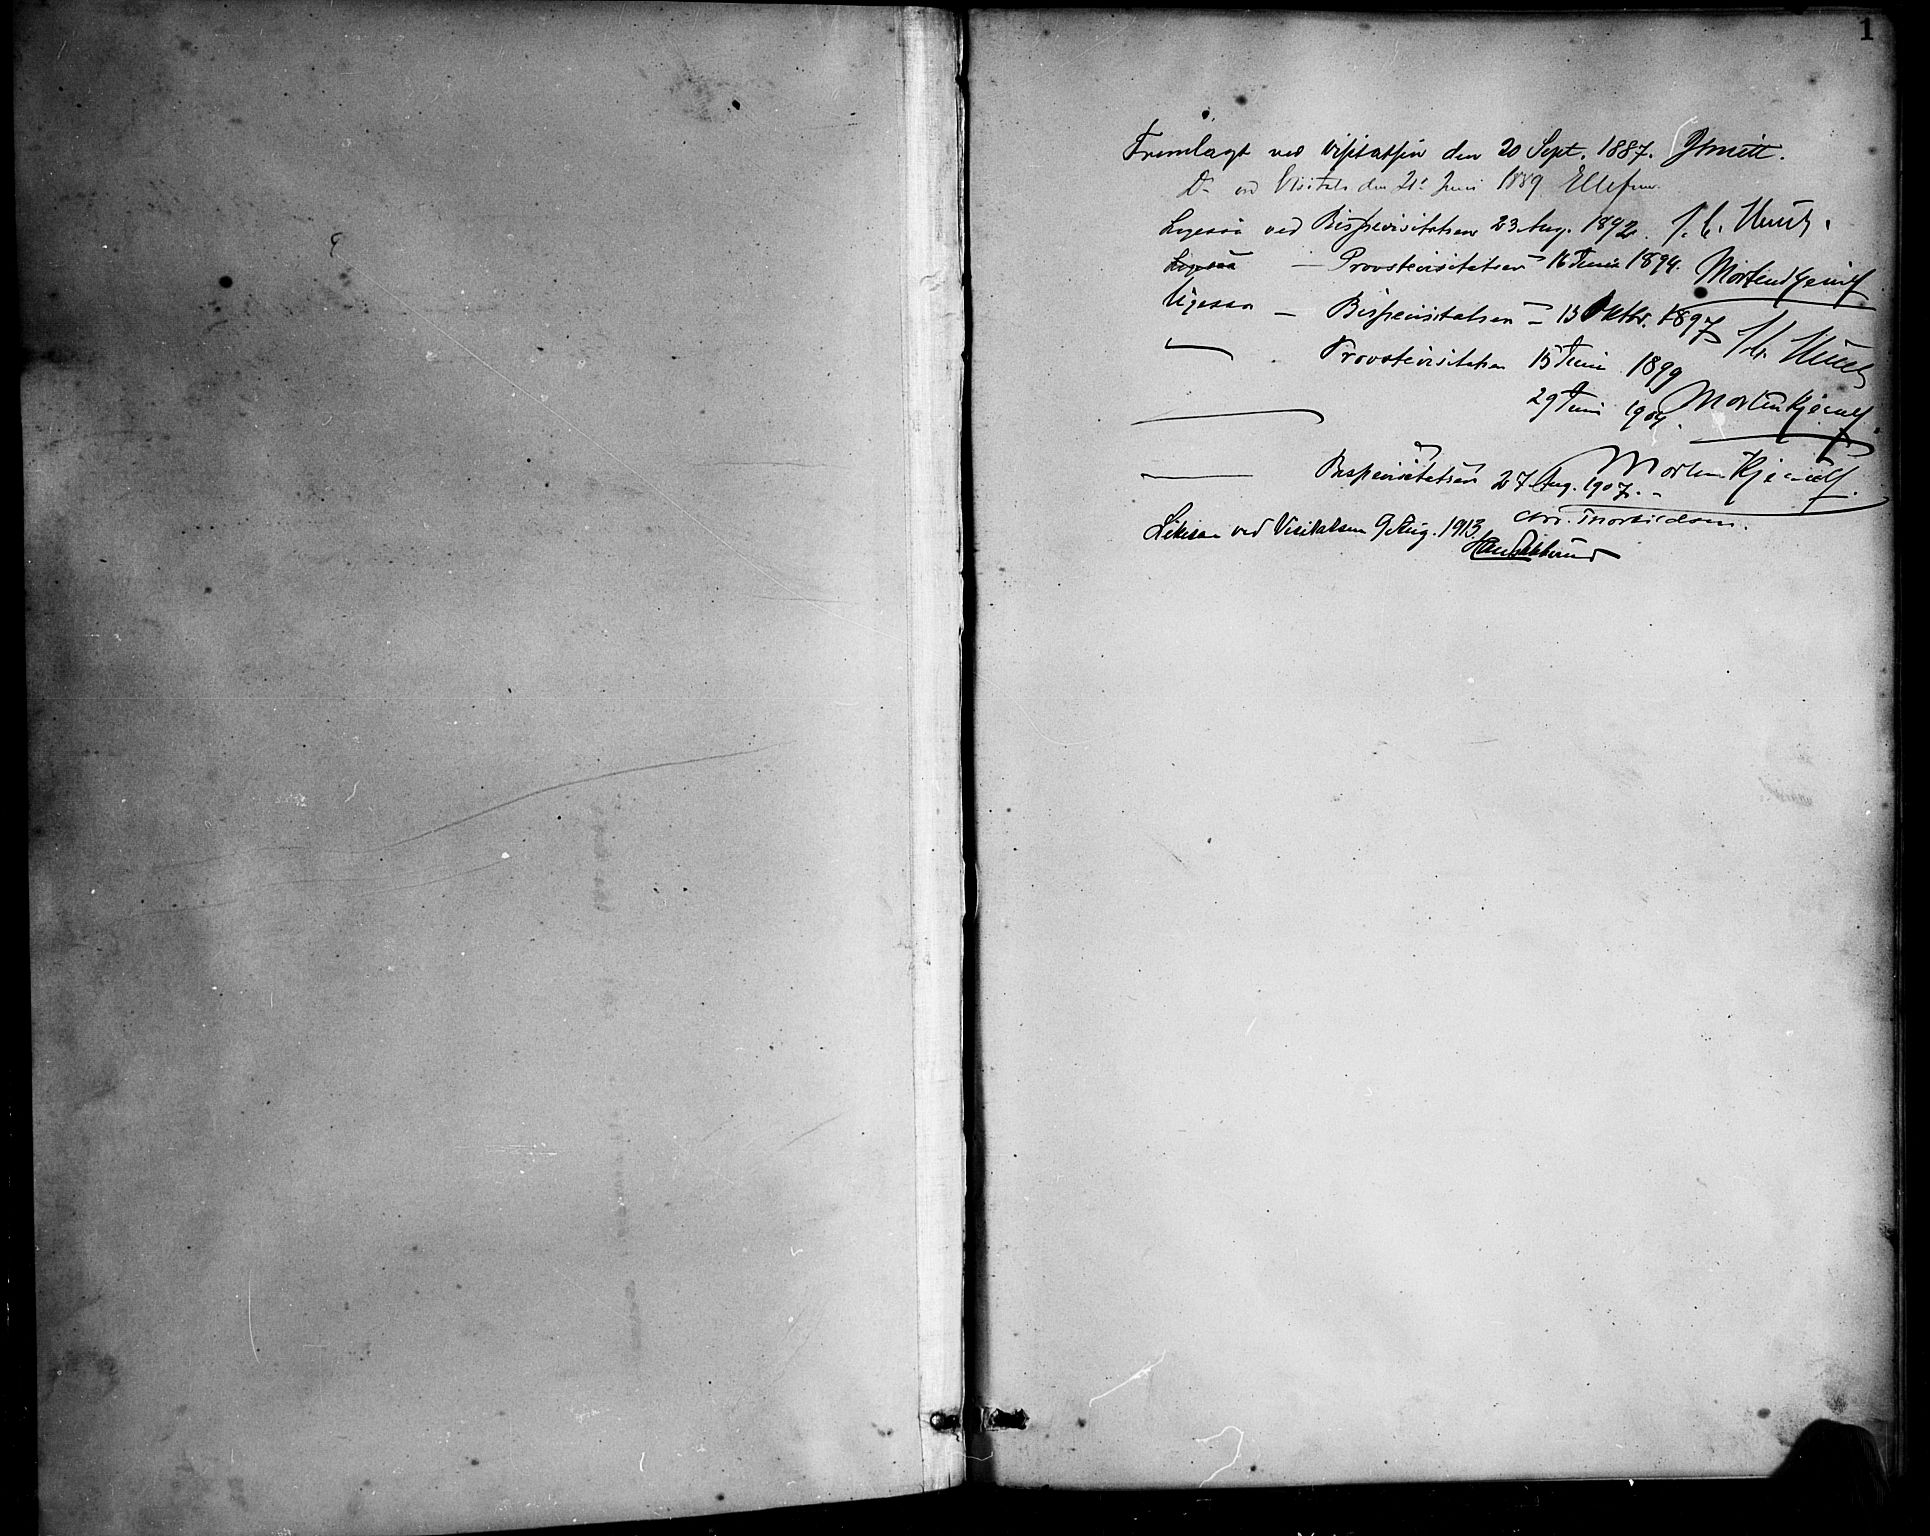 1
Fremlagt ved Visitatsen den 20 Sept. 1887. Smitt.
Do ved Visitats den 21de Juni 1889 Ellefsen
Ligesaa ved Bispevisitatsen 23 Aug. 1892. J. C. Heuch.
Ligesaa — Provstevisitatsen 16 Juni 1894. Morten Kjerulf
Ligesaa — Bispevisitatsen — 13 Oktbr. 1897 J. C. Heuch
— Provstevisitatsen 15 Juni 1899 Morten Kjerulf
— 29 Juni 1904. Morten Kjerulf.
— Bispevisitatsen 27 Aug. 1907. —
Chr. Thorkildsen.
Likesaa ved Visitatsen 9 Aug. 1913.